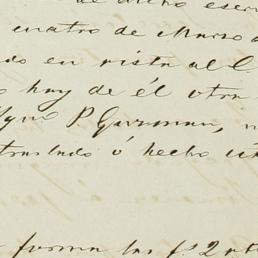 de dicho escri
cuatro de Marzo d
do en vista al C
hay de él otra
P. Guzman,
traslado ó hecho
forma las f.s 2